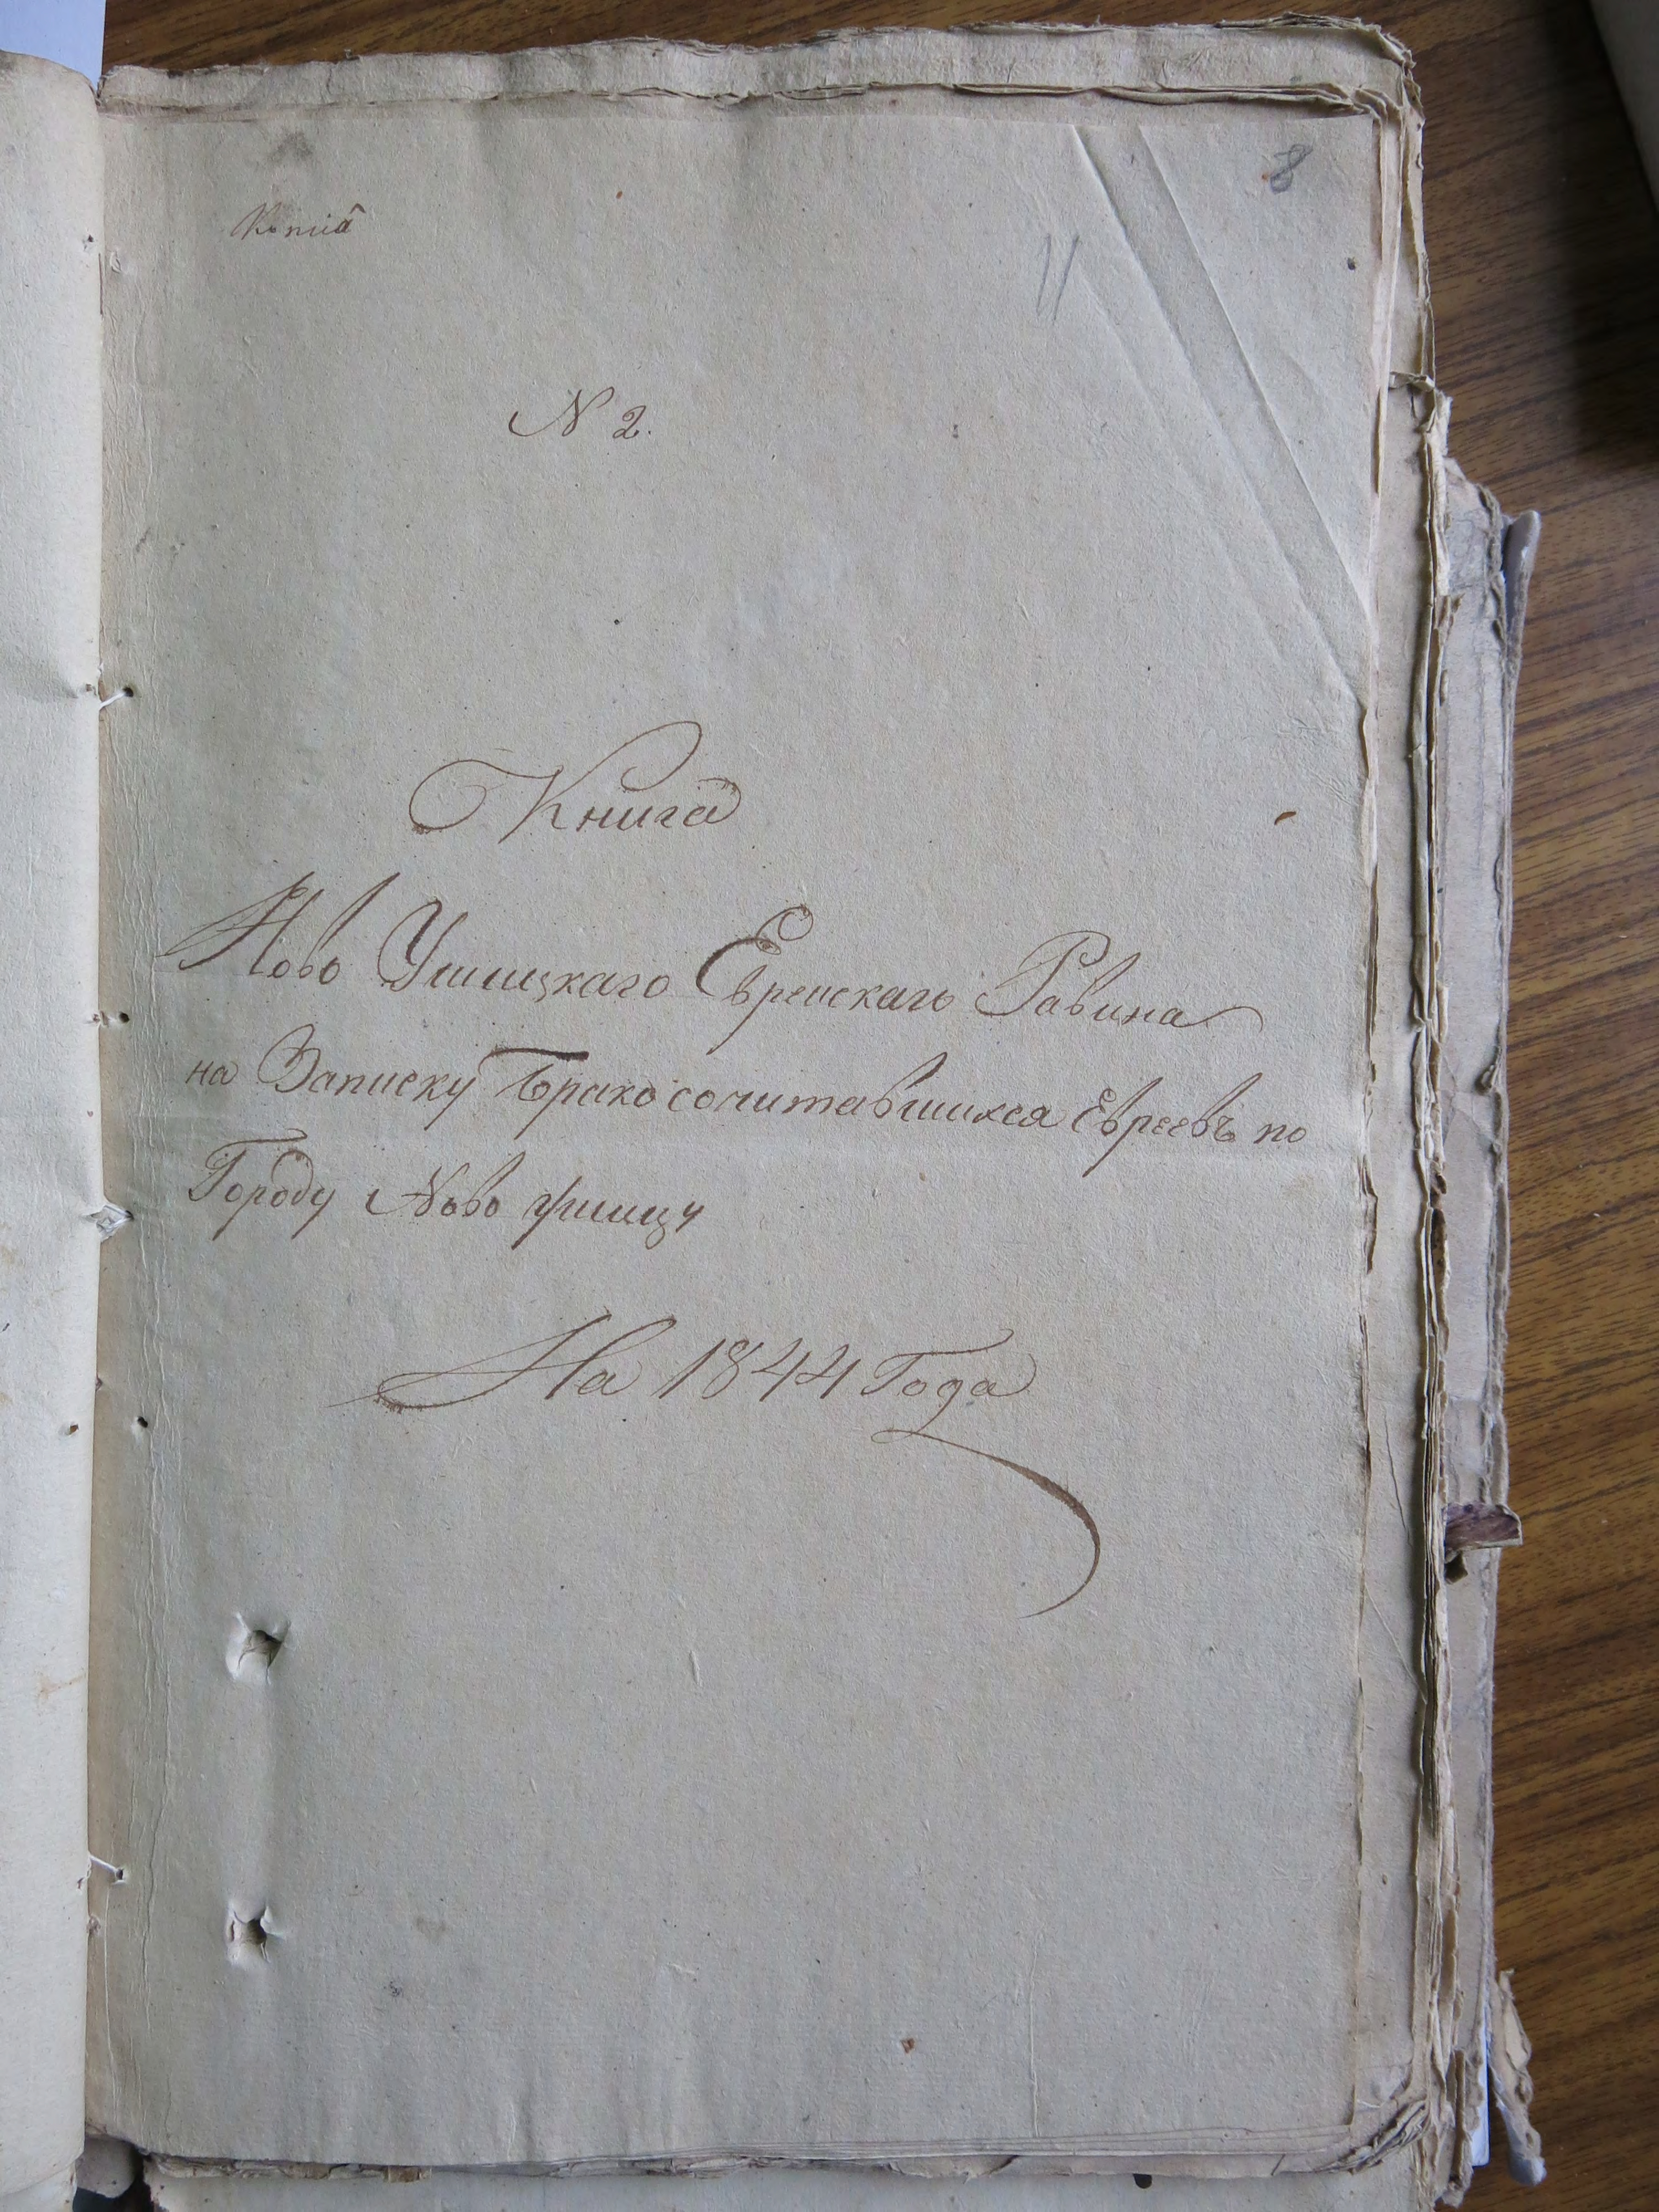 8
Копиа
11
N 2.
Книга
Ново Ушицкаго Евреискаго Равина
на Записку Бракосочитавшихся Евреевъ по
Городу Ново Ушицу
На 1844 Года